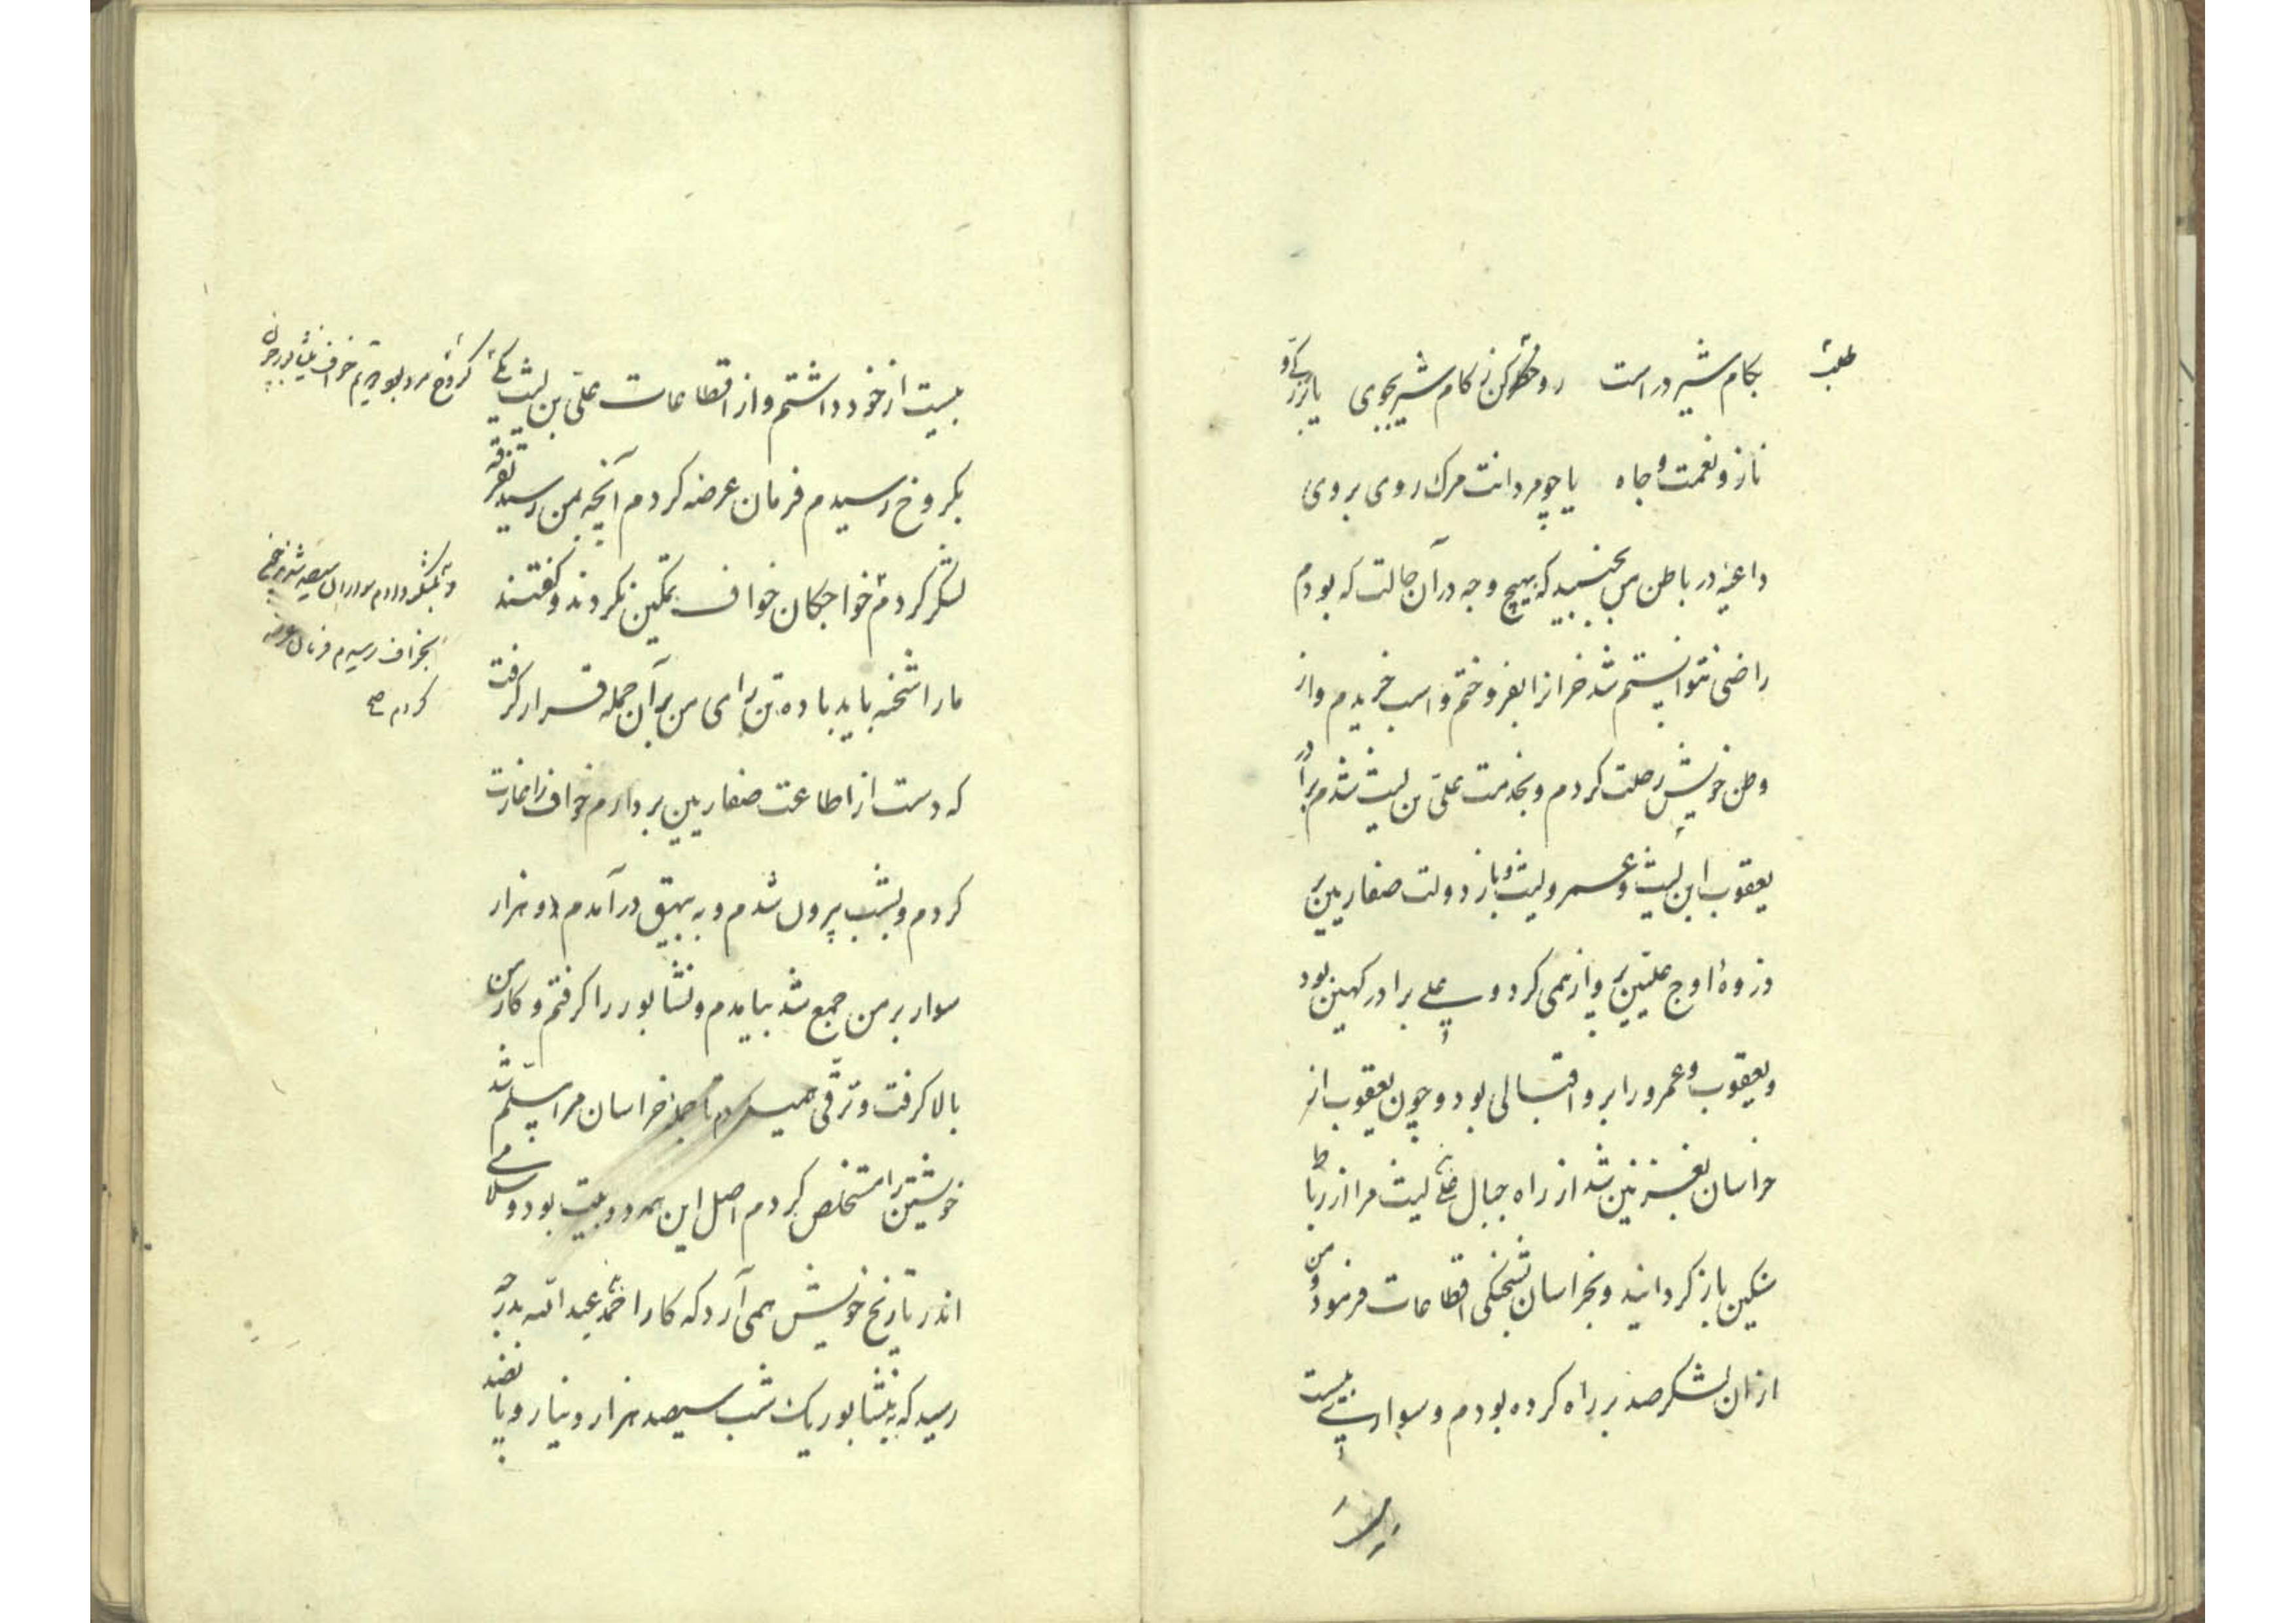 بکام شیر در است   رو خطر کن ز کام شیر بجوی   یا بزرگی و
ناز و نعمت و جاه   یا چو مردانت مرک روی بروی
داعیهٔ در باطن من بجنبید که بهیچ وجه در آن حالت که بودم
راضی نتوانستم شد خرانرا بفروختم و اسب خریدم و از
وطن خویش رحلت کردم و بخدمت علی بن لیث شدم برادر
یعقوب ابن لیث و عمرو لیث و باز دولت صفاریین بر
ذروهٔ اوج علیین پرواز همی کرد و علی برادر کهین بود
و یعقوب و عمرو را برو اقبالی بود و چون یعقوب از
خراسان بغزنین شد از راه جبال علی لیث مرا از رباط
سنکین باز کردانید و بخراسان بشحنکی اقطاعات فرمود و من
از ان لشکر صد بر راه کرده بودم و سواری بیست
بیست از خود داشتم و از اقطاعات علی بن لیث یکی
بکروخ رسیدم فرمان عرضه کردم آنچه بمن رسید تفرقه
لشکر کردم خواجکان خواف تمکین نکردند و کفتند
ما را شحنه باید با ده تن رای من بر آن جمله قرار کرفت
که دست از اطاعت صفاریین بردارم خواف را غارت
کردم و بشب بیرون شدم و به بیهق در آمدم دو هزار
سوار بر من جمع شد بیامدم و نشابور را کرفتم و کار من
بالا کرفت و ترقی همیکردم تا جمله خراسان مر ا مسلم شد
خویشتن را مستخلص کردم اصل این همه دو بیت بود و سلامی
اندر تاریخ خویش همی آرد که کار احمد عبد الله بدرجه
رسید که بنیشابور یک شب سیصد هزار دینار و پانصد
کروخ هرد بود و دیم خواف نیشابور چون
بخواف رسیدم فرمان عرضه
کردم صح